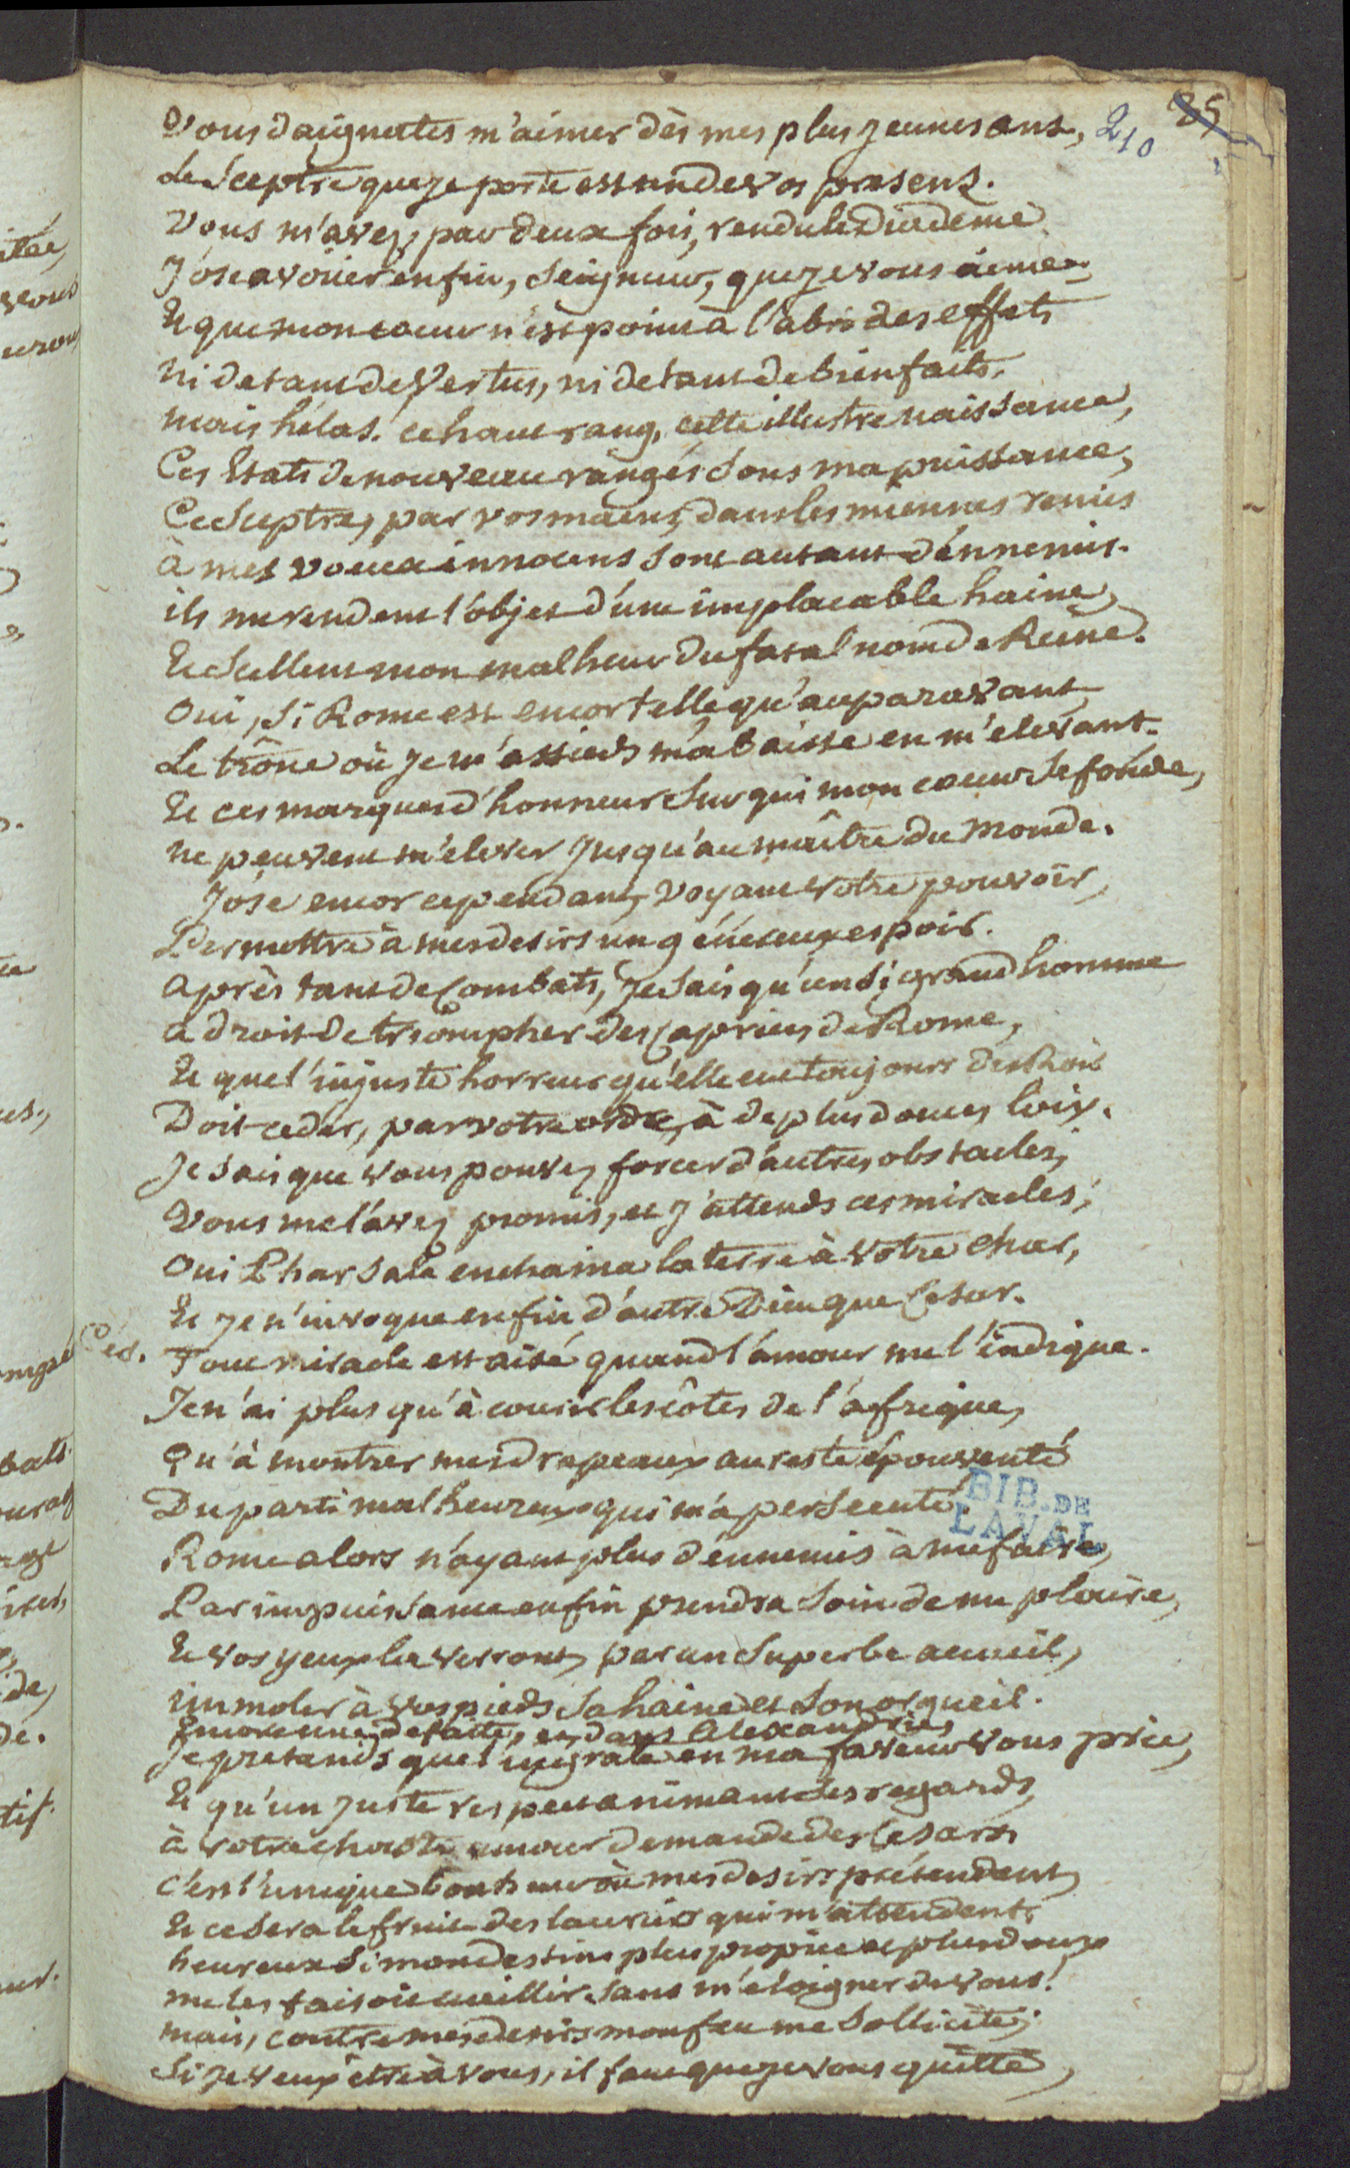 85
210
Vous daignates m'aimer dès mes plus jeunes ans,
Le Sceptre que je porte est un de vos presens.
Vous m'avez, par deux fois, rendu le Diademe.
J'ose avoüer enfin, Seigneur, que je vous aime
Et que mon coeur n'est point à l'abri des effets
ni de tant de Vertus, ni de tant de bienfaits.
mais hélas! ce haut rang, cette illustre naissance,
Ces Etats de nouveau rangés sous ma puissance,
Ce Sceptre, par vos mains, dans les miennes remis
à mes voeux innocens sont autant d'énnemis.
ils me rendent l'objet d'une implacable haine,
Et Scellent mon malheur du fatal nom de Reine.
Oui, Si Rome est encor telle qu'auparavant
Le trône où je m'assieds m'abaisse en m'elevant.
Et ces marques d'honneur sur qui mon coeur se fonde,
ne peuvent m'elever jusqu'au maître du Monde.
J'ose encor cependant, voyant votre pouvoir,
Permettre à mes desirs un généreux espoir.
Après tant de Combats, je sais qu'un si grand homme
a droit de triompher des caprices de Rome,
Et que l'injuste horreur qu'elle eut toujours des Rois
Doit ceder, par votre ordre, à de plus douces loix.
Je sais que vous pouvez forcer d'autres obstacles,
Vous me l'avez promis, et j'attends ces miracles;
Oui Pharsale enchaina la terre à votre char,
Et je n'invoque enfin d'autre Dieu que Cesar.
Ces. Tout miracle est aisé quand l'amour me l'indique.
Je n'ai plus qu'à courir les côtes de l'afrique,
Qu'à montrer mes drapeaux au reste épouventé
Du parti malheureux qui m'a persecuté.
Rome alors n'ayant plus d'ennemis à me faire,
Par impuissance enfin prendra soin de me plaire,
Et vos yeux la verront, par un superbe accueil,
immoler à vos pieds sa haine et son orgueil.
Encore une defaite, et dans Alexandrie,
Je pretends que l'ingrate en ma faveur vous prie,
Et qu'un juste respect animant ses regards,
à votre chaste amour demande des Cesars
c'est l'unique bonheur où mes desirs prétendent,
Et ce sera le fruit des lauriers qui m'attendent,
heureux si mon destin plus propice et plus doux
me les faisoit cueillir sans m'éloigner de vous!
mais, contre mes desirs mon feu me sollicite;
Si je veux être à vous, il faut que je vous quitte,
BIB. DE
LAVAL